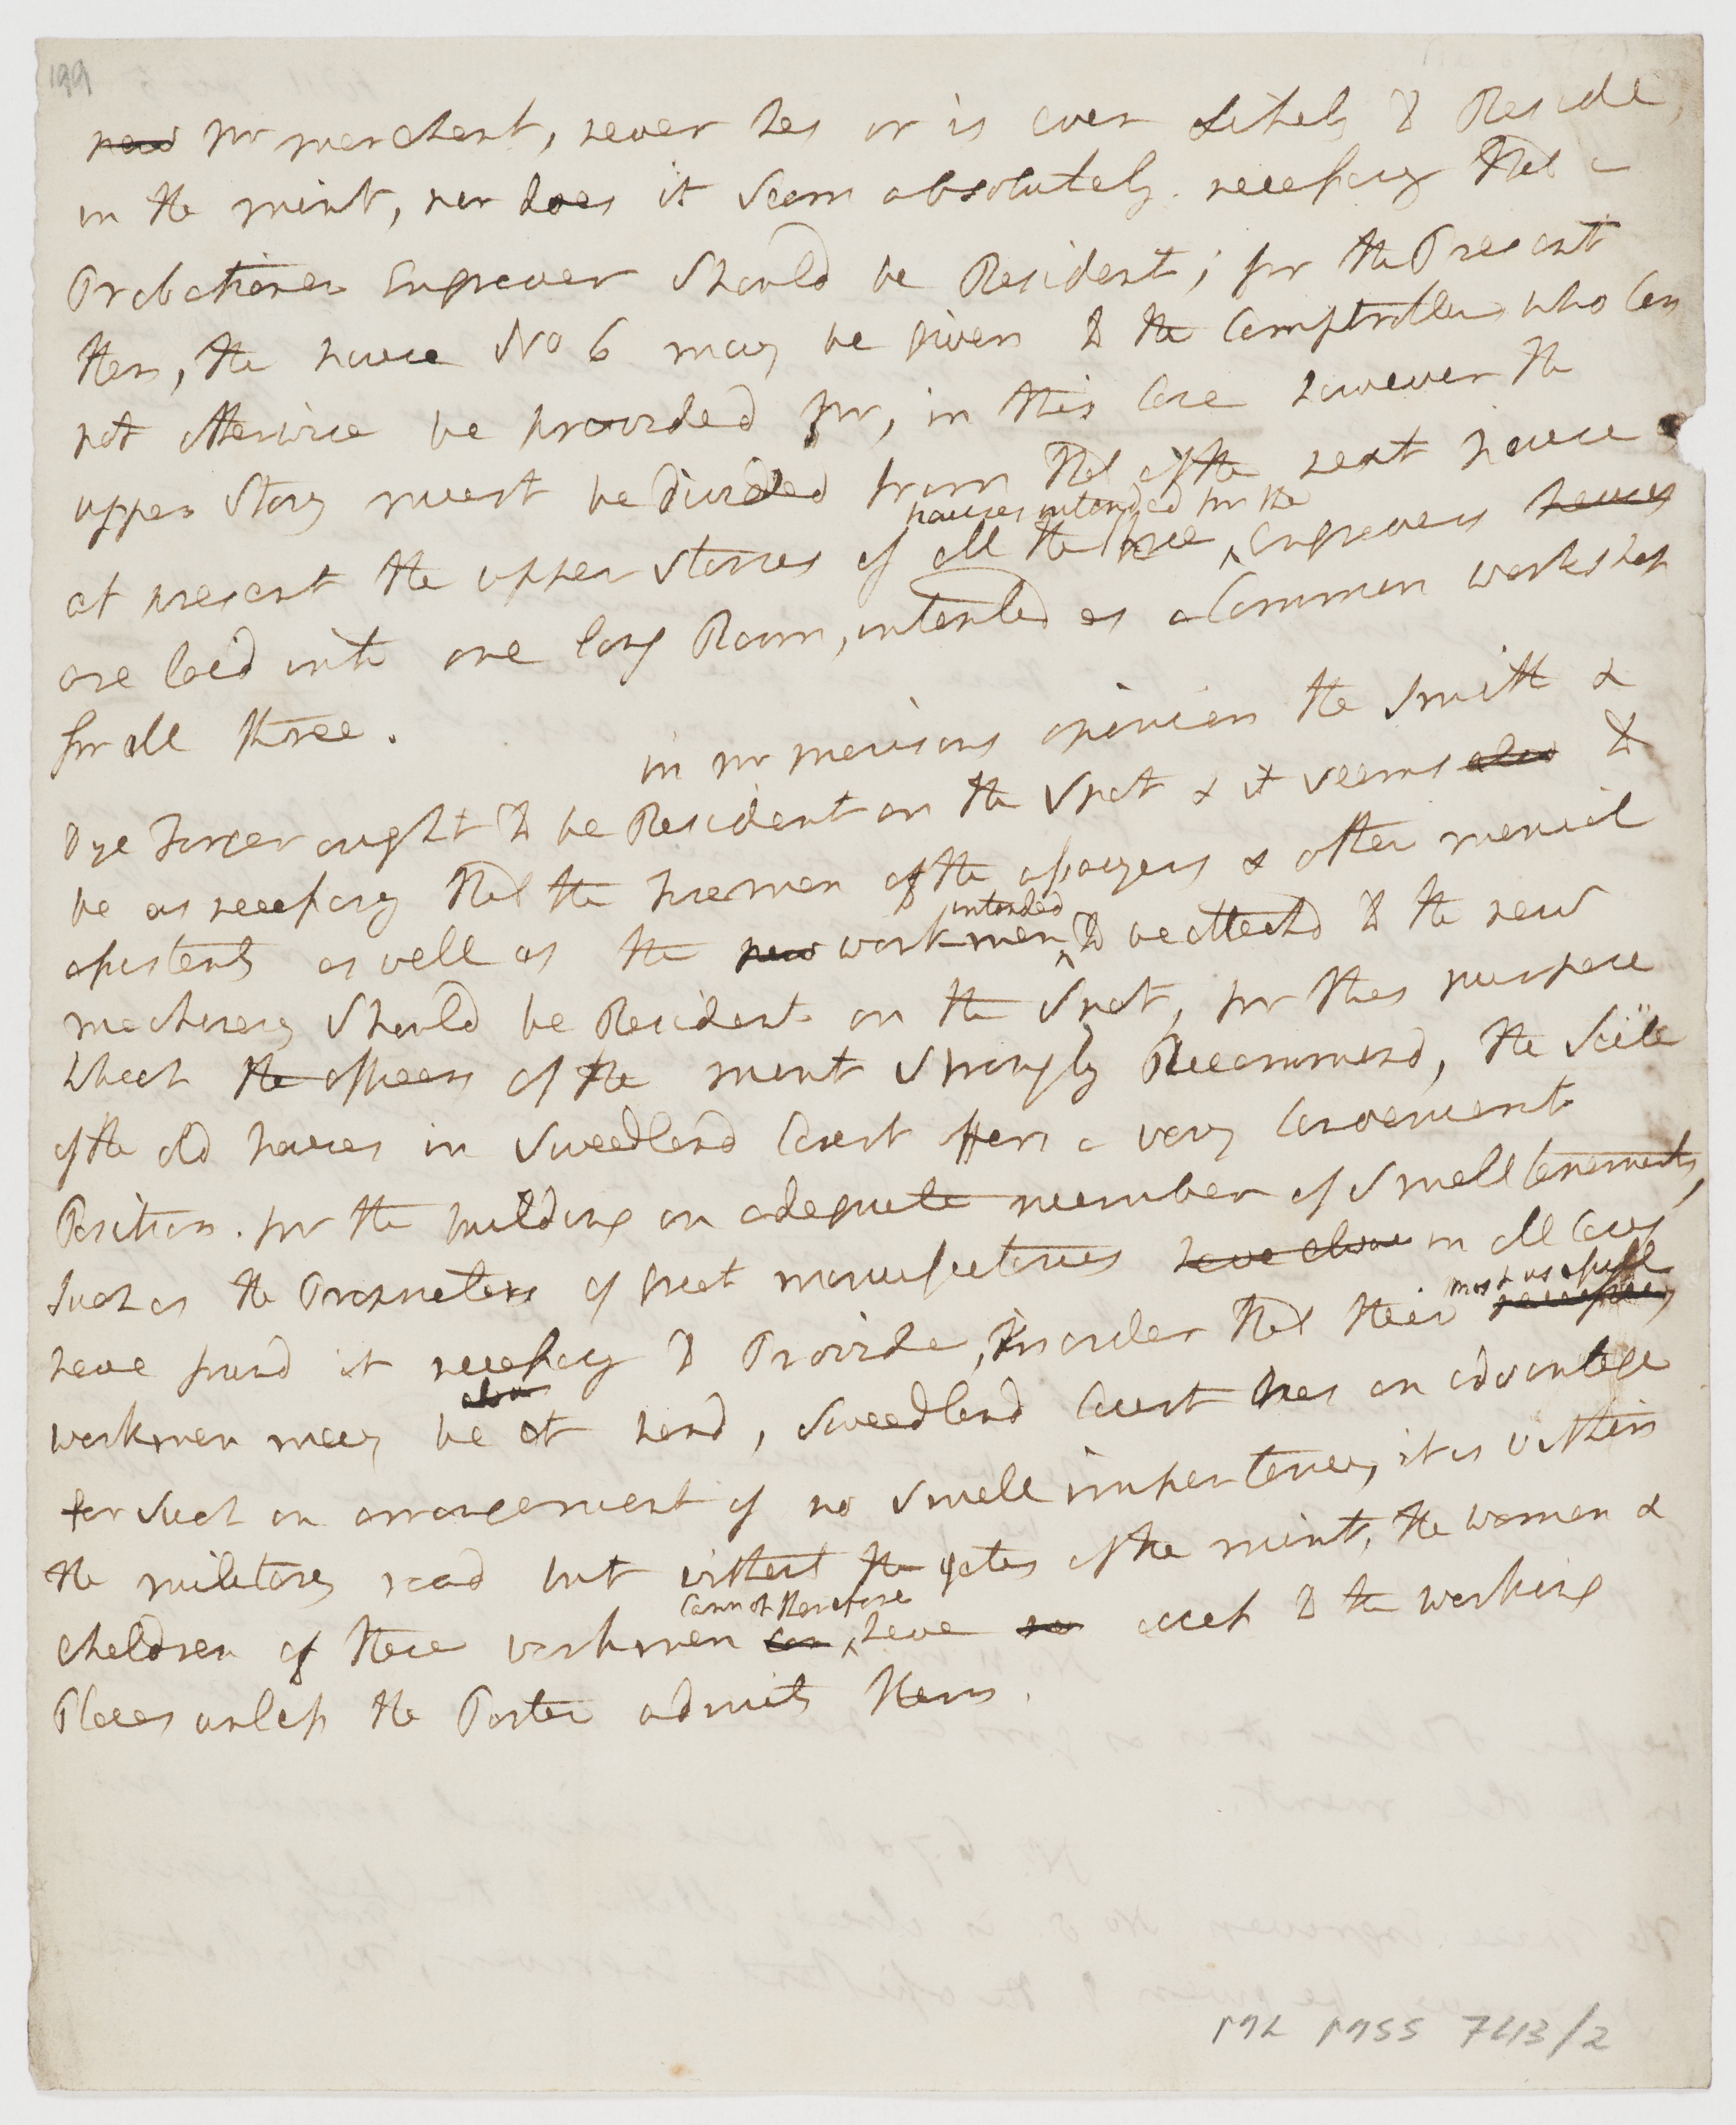 199
new mr merchant, never has or is ever Likely to Reside,
in the mint, nor does it Seem absolutely. necessary that a
Probationer Engraver Should be Resident; for the Present
then, the house No 6 may be given to the Comptroller who Can
not otherwise be provided for, in this Case however the
upper Story must be divided from that of the next house
houses intended for the
at present the upper stories of all the three ^ engravers houses
are laid into one long Room, intended as a Common workshop
for all three.
in mr morisons opinion the Smith &
Dye Forger ought to be Resident on the Spot & it seems also to
be as necessary that the Firemen of the assayers & other menial
intended
assistents as well as the new workmen ^ to be attachd to the new
machinery Should be Resident on the Spot, for this purpose
which the officers of the mint Strongly Recommend, the Scite
of the old houses in Sweedland Court offers a very Convenient
Position. for the building an adequate number of Small tenements,
Such as the Proprietors of great manufactories have alwa in all Cases
most usefull
have found it necessary to Provide, in order that their necessary
alwa
workmen may be at hand, Sweedland Court has an advantage
for Such an arrangement of no Small importance, it is within
the military road but without the gates of the mint, the women &
Cannot therefore
children of these workmen can ^ have no access to the working
Places unless the Porter admits them.
ML MSS 743/2